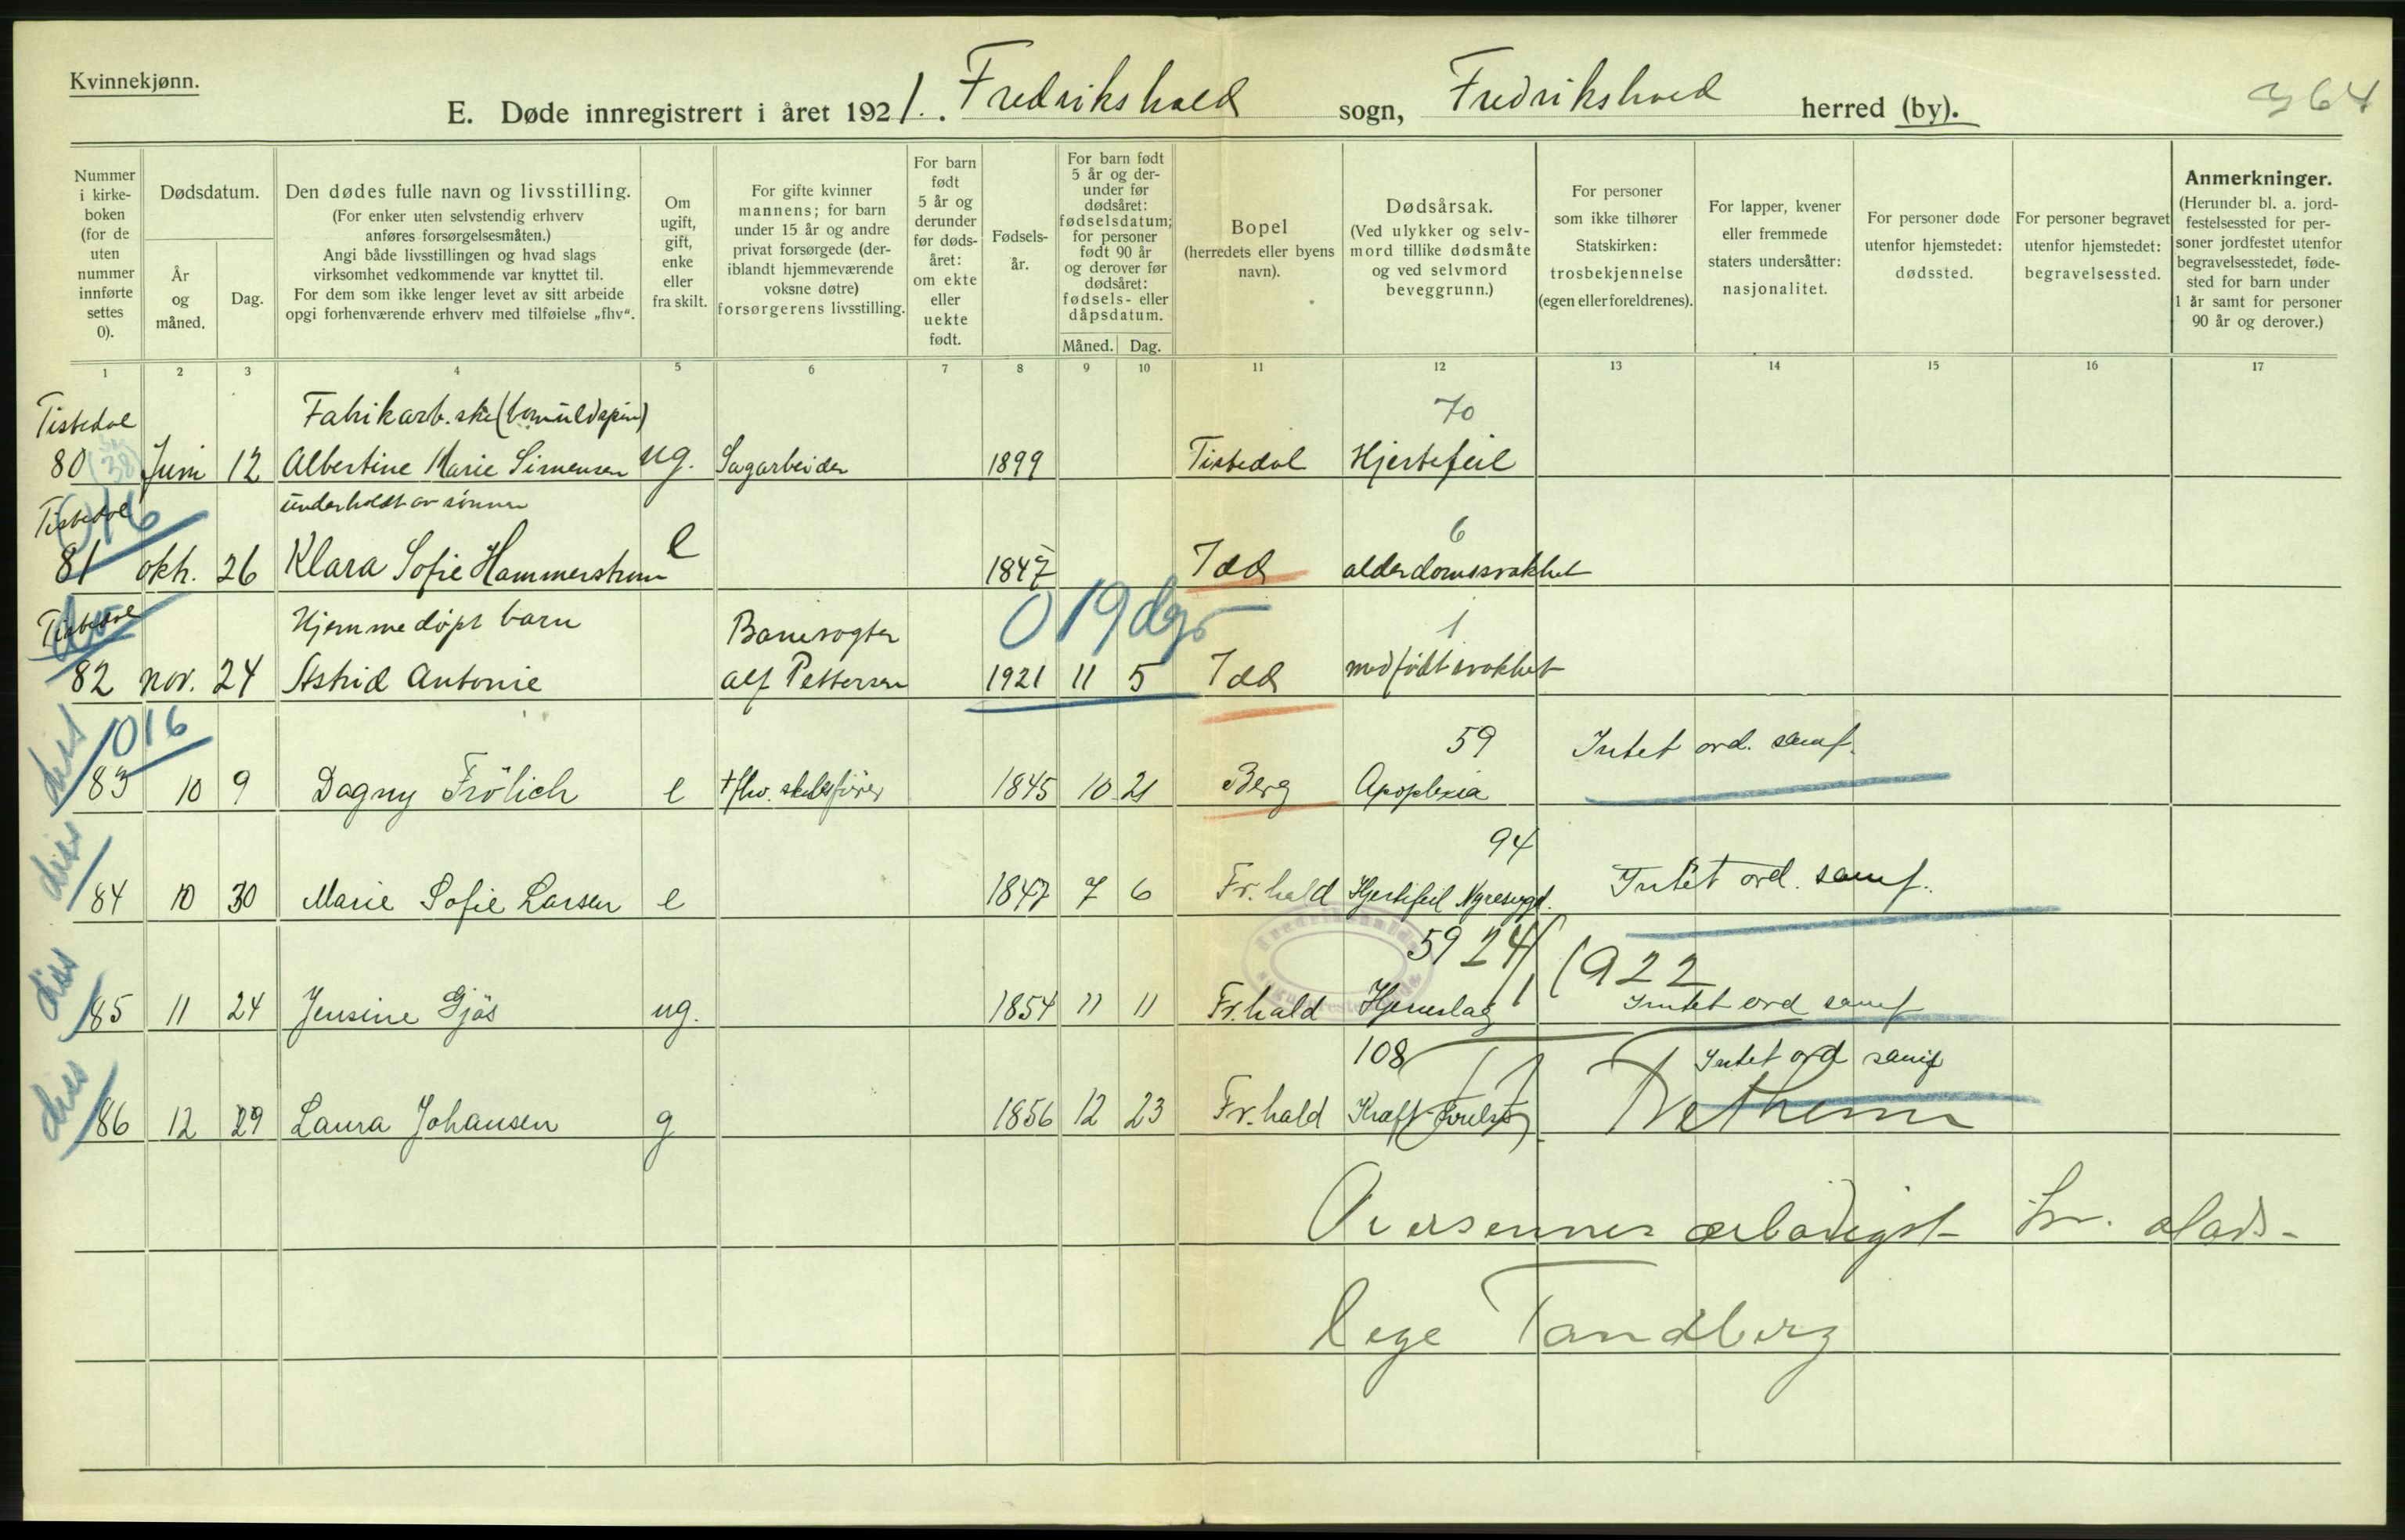 Kvinnekjønn.
E. Døde innregistrert i året 1921. Fredrikshald sogn, Fredrikshald herred (by).
364
Nummer i kirke-boken (for de uten nummer innførte settes 0).
Dødsdatum.
År og måned.
Dag.
Den dødes fulle navn og livsstilling.
(For enker uten selvstendig erhverv anføres forsørgelsesmåten.)
Angi både livsstillingen og hvad slags virksomhet vedkommende var knyttet til.
For dem som ikke lenger levet av sitt arbeide opgi forhenværende erhverv med tilføielse „fhv“.
Om ugift, gift, enke eller fraskilt.
For gifte kvinner mannens; for barn under 15 år og andre privat forsørgede (deriblandt hjemmeværende voksne døtre) forsørgerens livsstilling.
For barn født 5 år og derunder før døds-året: om ekte eller uekte født.
Fødsels-år.
For barn født 5 år og der-under før dødsåret: fødselsdatum; for personer født 90 år og derover før dødsåret: fødsels- eller dåpsdatum.
Måned. Dag.
Bopel
(herredets eller byens navn).
Dødsårsak.
(Ved ulykker og selv-mord tillike dødsmåte og ved selvmord beveggrunn.)
For personer som ikke tilhører Statskirken: trosbekjennelse (egen eller foreldrenes).
For lapper, kvener eller fremmede staters undersåtter: nasjonalitet.
For personer døde utenfor hjemstedet: dødssted.
For personer begravet utenfor hjemstedet: begravelsessted.
Anmerkninger.
(Herunder bl. a. jord-festelsessted for per-soner jordfestet utenfor begravelsesstedet, føde-sted for barn under 1 år samt for personer 90 år og derover.)
1 2 3 4 5 6 7 8 9 10 11 12 13 14 15 16 17
Tistedal Fabrikarb.ske (bomuldspin) 70
80 (38) Juni 12 Albertine Marie Simensen ug. Sagarbeider 1899 Tistedal Hjertefeil
Tistedal 016 underholdt av sønnen 6
81 okt. 26 Klara Sofie Hammerstrøm e 1847 Idd alderdomssvakhet
Tistedal Hjemmedøpt barn Banevogter 019 dgr 1
82 nov. 24 Astrid Antonie Alf Pettersen 1921 11 5 Idd medfødt svakhet
diss 016 59 Intet ord. samf.
83 10 9 Dagny Frölich e 1845 10 21 Berg Apoplexia
diss 94
84 10 30 Marie Sofie Larsen e 1847 7 6 Fr.hald Hjertefeil Nyresygd. Intet ord. samf.
diss 59 24/1 1922
85 11 24 Jensine Gjös ug. 1854 11 11 Fr.hald Hjerneslag Intet ord samf
diss 108 Intet ord samf
86 12 29 Laura Johansen g 1856 12 23 Fr.hald Kræft
Oversennes ærbødigst hr. stads-
lege Tandberg